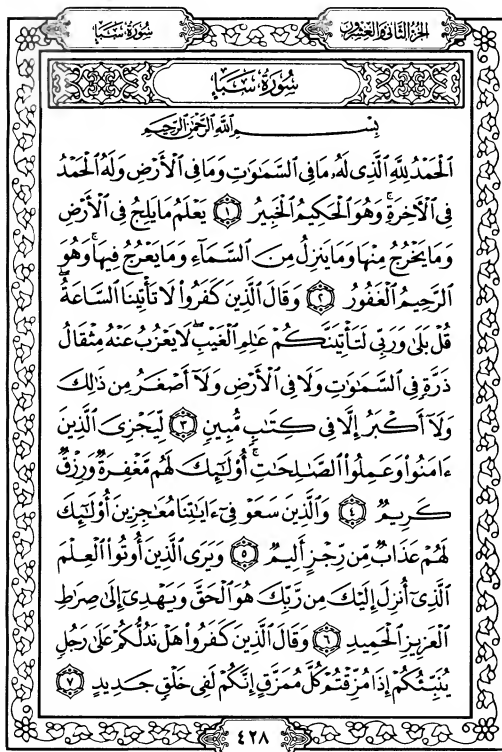 الجزء الثاني والعشرون سورة سبأ
سُورَةُ سَبَإٍ
بِسْمِ اللَّهِ الرَّحْمَٰنِ الرَّحِيمِ
الْحَمْدُ لِلَّهِ الَّذِي لَهُ مَا فِي السَّمَٰوَٰتِ وَمَا فِي الْأَرْضِ وَلَهُ الْحَمْدُ
فِي الْآخِرَةِ ۚ وَهُوَ الْحَكِيمُ الْخَبِيرُ ١ يَعْلَمُ مَا يَلِجُ فِي الْأَرْضِ
وَمَا يَخْرُجُ مِنْهَا وَمَا يَنزِلُ مِنَ السَّمَآءِ وَمَا يَعْرُجُ فِيهَا ۚ وَهُوَ
الرَّحِيمُ الْغَفُورُ ٢ وَقَالَ الَّذِينَ كَفَرُوا لَا تَأْتِينَا السَّاعَةُ ۖ
قُلْ بَلَىٰ وَرَبِّي لَتَأْتِيَنَّكُمْ عَٰلِمِ الْغَيْبِ ۖ لَا يَعْزُبُ عَنْهُ مِثْقَالُ
ذَرَّةٍ فِي السَّمَٰوَٰتِ وَلَا فِي الْأَرْضِ وَلَآ أَصْغَرُ مِن ذَٰلِكَ
وَلَآ أَكْبَرُ إِلَّا فِي كِتَٰبٍ مُّبِينٍ ٣ لِّيَجْزِيَ الَّذِينَ
ءَامَنُوا وَعَمِلُوا الصَّٰلِحَٰتِ ۚ أُو۟لَٰٓئِكَ لَهُم مَّغْفِرَةٌ وَرِزْقٌ
كَرِيمٌ ٤ وَالَّذِينَ سَعَوْ فِيٓ ءَايَٰتِنَا مُعَٰجِزِينَ أُو۟لَٰٓئِكَ
لَهُمْ عَذَابٌ مِّن رِّجْزٍ أَلِيمٌ ٥ وَيَرَى الَّذِينَ أُوتُوا الْعِلْمَ
الَّذِيٓ أُنزِلَ إِلَيْكَ مِن رَّبِّكَ هُوَ الْحَقَّ وَيَهْدِيٓ إِلَىٰ صِرَٰطِ
الْعَزِيزِ الْحَمِيدِ ٦ وَقَالَ الَّذِينَ كَفَرُوا هَلْ نَدُلُّكُمْ عَلَىٰ رَجُلٍ
يُنَبِّئُكُمْ إِذَا مُزِّقْتُمْ كُلَّ مُمَزَّقٍ إِنَّكُمْ لَفِي خَلْقٍ جَدِيدٍ ٧
٤٢٨